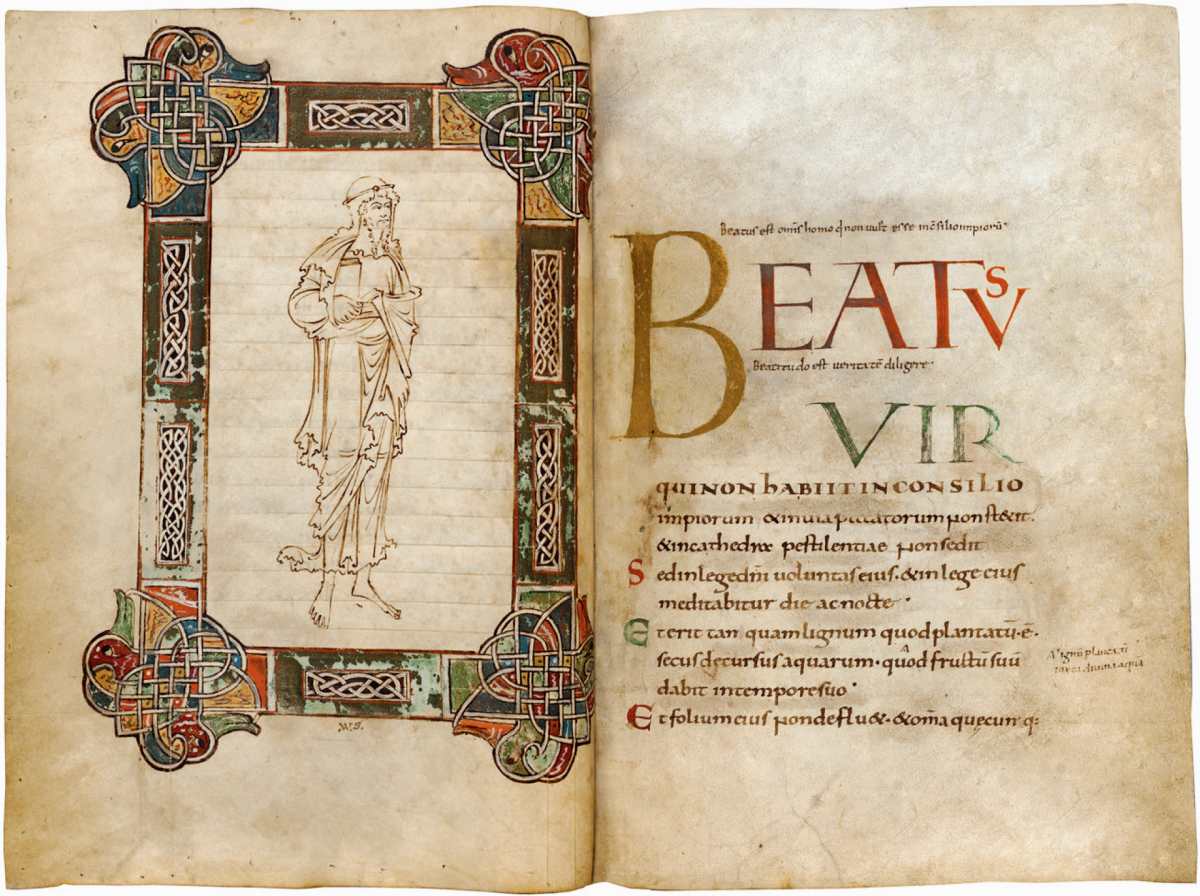 Beatus est om̄is homo q̇ non uult esse in c̄silio impiorū·
BEATVS
Beatitudo est veritatē diligere·
VIR
QUI NON hABIIT IN CONSILIO
impiorum & in uia peccatorum non stetit.
& in cathedra pestilentiae non sedit
Sed in lege dn̄i uoluntas eius. & in lege eius
meditabitur die ac nocte·
Et erit tan quam lignum quod plantatū·ē·
secus decursus aquarum· quod fructū suū
dabit in tempore suo·
Et folium eius non deflu&· & om̄a quęcunq: